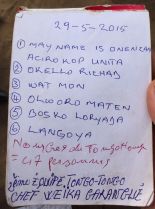 29-5-2015
① MAY NAME IS ONENCAN
ACIRO KOP UNITA
② OKELLO RICHAD
③ WAT MON
④ OLWORO MATEN
⑤ BOSKO LORYADA
⑥ LANGOYA
= 47 personnes
2ème EQUIPE TONGO-TONGO
CHEF WEIKA GARANGULE